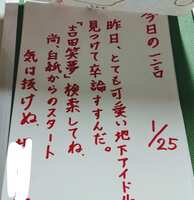 今日の一言
1/25
昨日、とても可愛い地下アイドル
見つけて卒論すすんだ。
「吉田笑夢」検索してね。
尚、白紙からのスタート
気は抜けぬ。